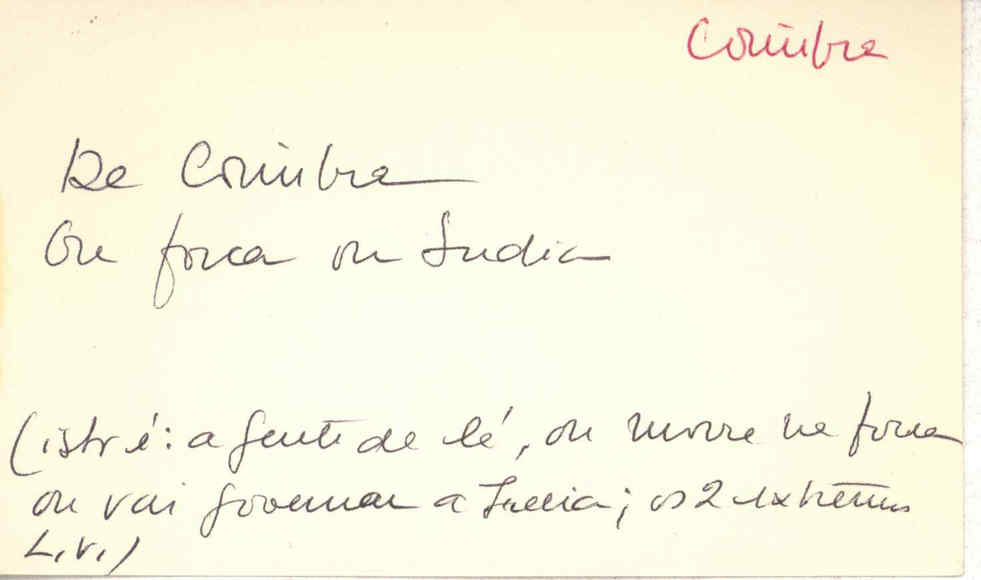 Coimbra
De Coimbra
Ou forca ou India
(isto é: a gente de lá, ou morre na forca
ou vai governar a India; os 2 extremos
L.V.)